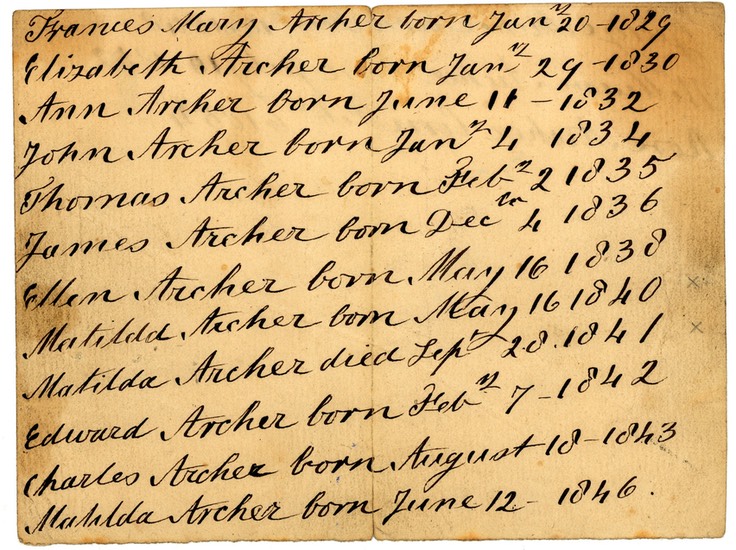 Frances Mary Archer born Jany 20 - 1829
Elizabeth Archer born Jany 29 - 1830
Ann Archer born June 11 - 1832
John Archer born Jany 4 1834
Thomas Archer born Feby 2 1835
James Archer born Decr 4 1836
Ellen Archer born May 16 1838
Matilda Archer born May 16 1840
Matilda Archer died Sept 28. 1841
Edward Archer born Feby 7 - 1842
Charles Archer born August 18 - 1843
Matilda Archer born June 12 - 1846.